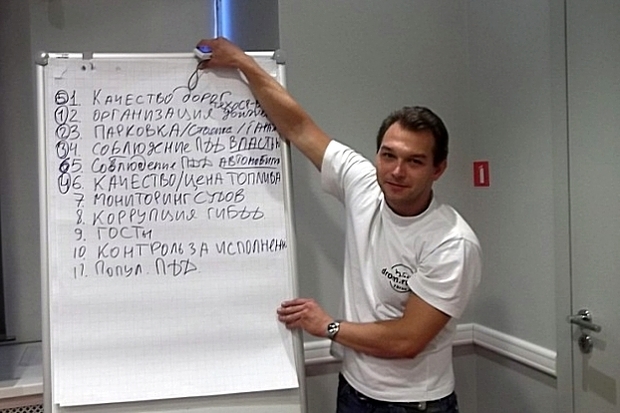 ⑤1. КАЧЕСТВО ДОРОГ
①2. ОРГАНИЗАЦИЯ
②3. ПАРКОВКА/СТОЯНКА/
③4. СОБЛЮДЕНИЕ ПДД ВЛАСТЬЮ
⑥5. СОБЛЮДЕНИЕ ПДД АВТОМОБИ
④6. КАЧЕСТВО/ЦЕНА ТОПЛИВА
7. МОНИТОРИНГ СУДОВ
8. КОРРУПЦИЯ ГИБДД
9. ГОСТЫ
10 КОНТРОЛЬ ЗА ИСПОЛНЕНИ
11. ПОПУЛ. ПДД